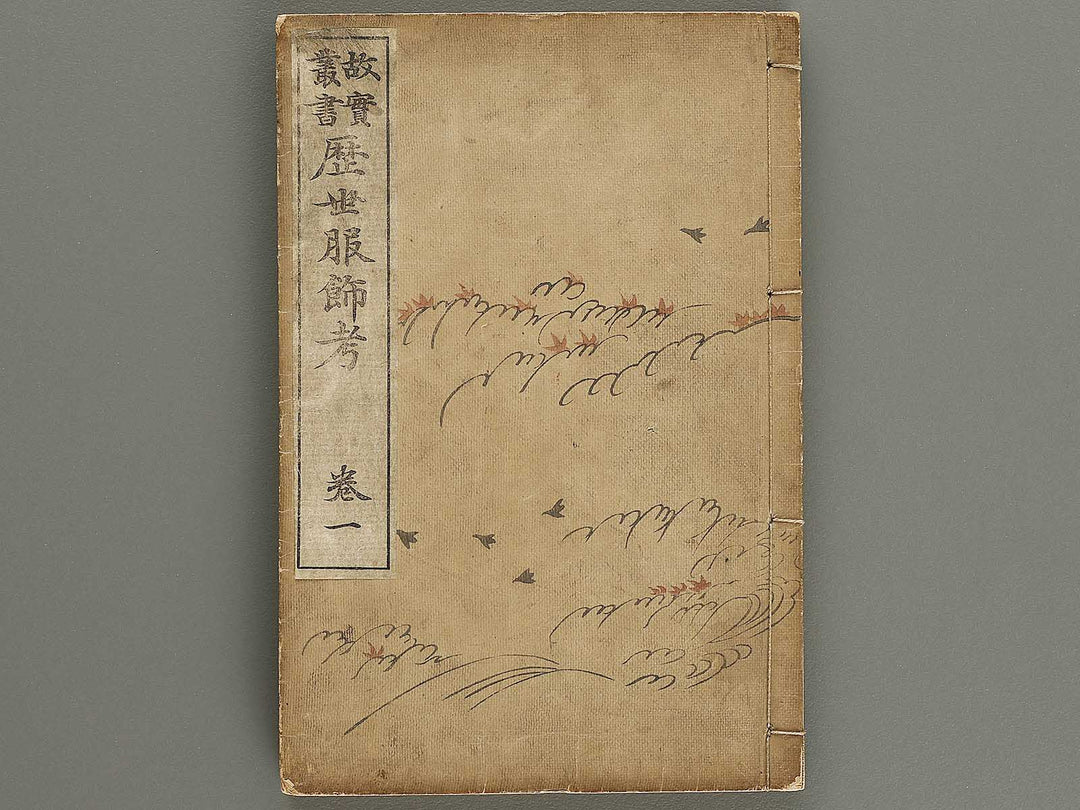 故實叢書
歴世服飾考
卷一